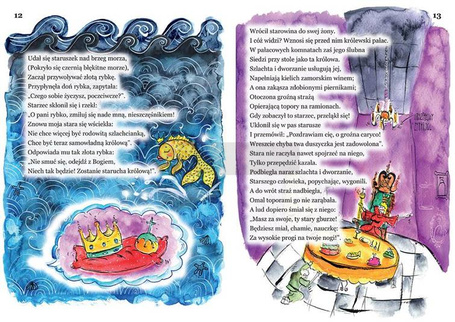 12
Udał się staruszek nad brzeg morza,
(Pokryło się czernią błękitne morze),
Zaczął przywoływać złotą rybkę.
Przypłynęła doń rybka, zapytała:
„Czego sobie życzysz, poczciwcze?".
Starzec skłonił się i rzekł:
„O pani rybko, zmiłuj się nade mną, nieszczęśnikiem!
Znowu moja stara się wścieka:
Nie chce więcej być rodowitą szlachcianką,
Chce być teraz samowładną królową".
Odpowiada mu tak złota rybka:
„Nie smuć się, odejdź z Bogiem,
Niech tak będzie! Zostanie starucha królową!".
13
Wrócił starowina do swej żony.
I cóż widzi? Wznosi się przed nim królewski pałac.
W pałacowych komnatach zaś jego ślubna
Siedzi przy stole jako ta królowa.
Szlachta i dworzanie usługują jej,
Napełniają kielich zamorskim winem;
A ona zakąsza zdobionymi piernikami;
Otoczona groźną strażą
Opierającą topory na ramionach.
Gdy zobaczył to starzec, przeląkł się!
Ukłonił się w pas starusze
I przemówił: „Pozdrawiam cię, o groźna caryco!
Wreszcie chyba twa duszyczka jest zadowolona".
Stara nie raczyła nawet spojrzeć na niego,
Tylko przepędzić kazała.
Podbiegła naraz szlachta i dworzanie,
Starszego człowieka, popychając, wygonili.
A do wrót straż nadbiegła,
Omal toporami go nie zarąbała.
A lud dopiero śmiał się z niego:
„Masz za swoje, ty stary gburze!
Będziesz miał, chamie, nauczkę:
Za wysokie progi na twoje nogi!".